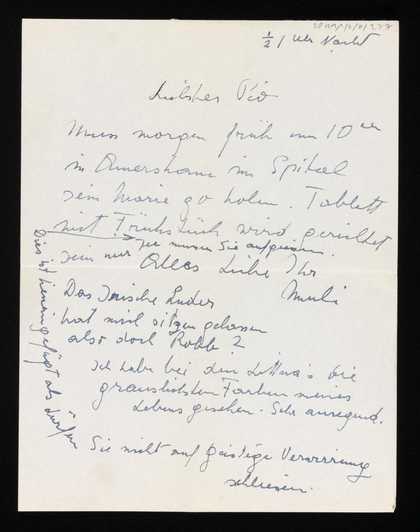 ½ 1 Uhr Nacht
Liebster Pio
Muss morgen früh um 10 Uhr
in Amersham im Spital
sein Marie zu holen. Tablett
mit Frühstück wird gerichtet
sein nur Tee müssen Sie aufgiessen.
Alles Liebe Ihr
Muli
Das Irische Luder
hat mich sitzen gelassen
also doch
Ich habe bei den die
grauslichsten Farben meines
Lebens gesehen. Sehr anregend.
Dies ist hinzugefügt als dürfen
Sie nicht auf geistige Verwirrung
schliessen.